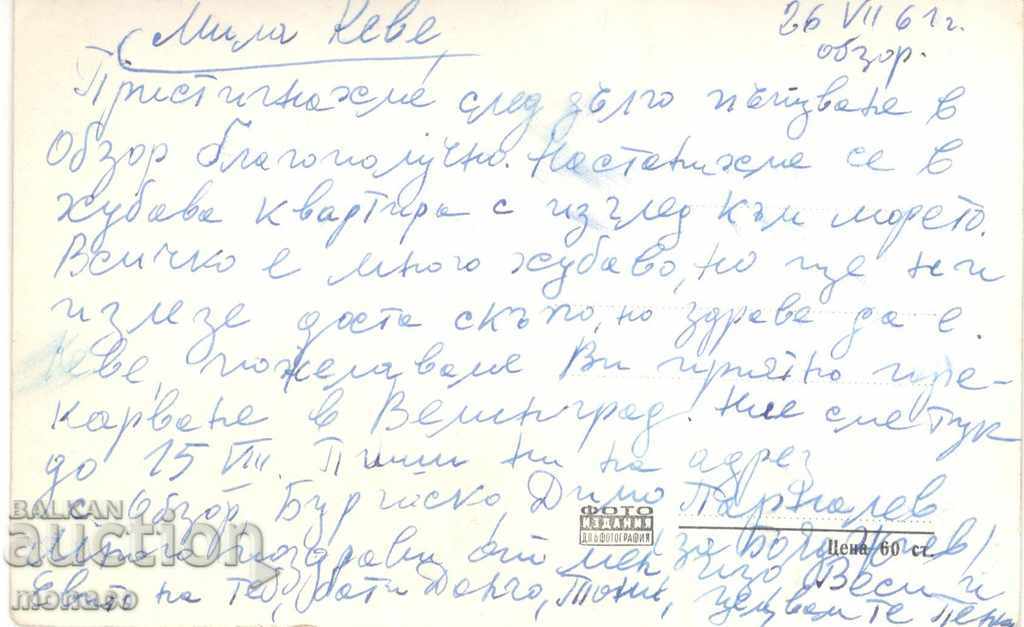 26 VII 61 г.
Обзор.
Мила Кеве,
Пристигнахме след дълго пътуване в
Обзор благополучно. Настанихме се в
хубава квартира с изглед към морето.
Всичко е много хубаво, но ще ни
излезе доста скъпо, но здраве да е.
Кеве, пожелаваме Ви приятно пре-
карване в Велинград. Ние сме тук
до 15 VIII. Пиши ни на адрес
с. Обзор, Бургаско, Димо
Много поздрави от мен за
Веси и
на теб, бати Данчо, Тони,
ФОТО
ИЗДАНИЯ
ДП БЪЛГ. ФОТОГРАФИЯ
Цена 60 ст.
BALKAN
auction